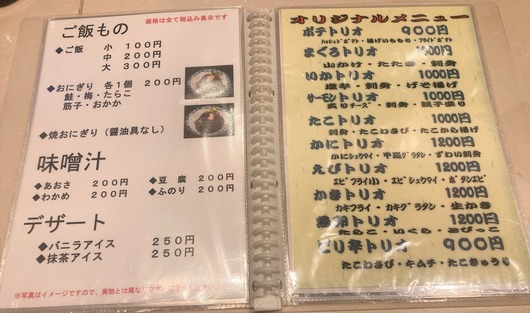 ご飯もの
価格は全て税込み表示です
◆ご飯 小 100円
中 200円
大 300円
◆おにぎり 各1個 200円
鮭・梅・たらこ
筋子・おかか
◆焼おにぎり(醤油具なし)
味噌汁
◆あおさ 200円 ◆豆腐 200円
◆わかめ 200円 ◆ふのり 200円
デザート
◆バニラアイス 250円
◆抹茶アイス 250円
※写真はイメージですので、実物とは異な
オリジナルメニュー
ポテトリオ 900円
ハッシュドポテト・揚げいももち・フライドポテト
まぐろトリオ 1000円
山かけ・たたき・刺身
いかトリオ 1000円
塩辛・刺身・げそ揚げ
サーモントリオ 1000円
炙りチーズ・刺身・親子盛り
たこトリオ 1000円
刺身・たこわさび・たこから揚げ
かにトリオ 1200円
かにシュウマイ・甲羅グラタン・ずわい刺身
えびトリオ 1200円
エビフライ小・エビシュウマイ・ボタンエビ
かきトリオ 1200円
カキフライ・カキグラタン・生かき
魚卵トリオ 1200円
たらこ・いくら・とびっこ
ピリ辛トリオ 900円
たこわさび・キムチ・たこきゅうり